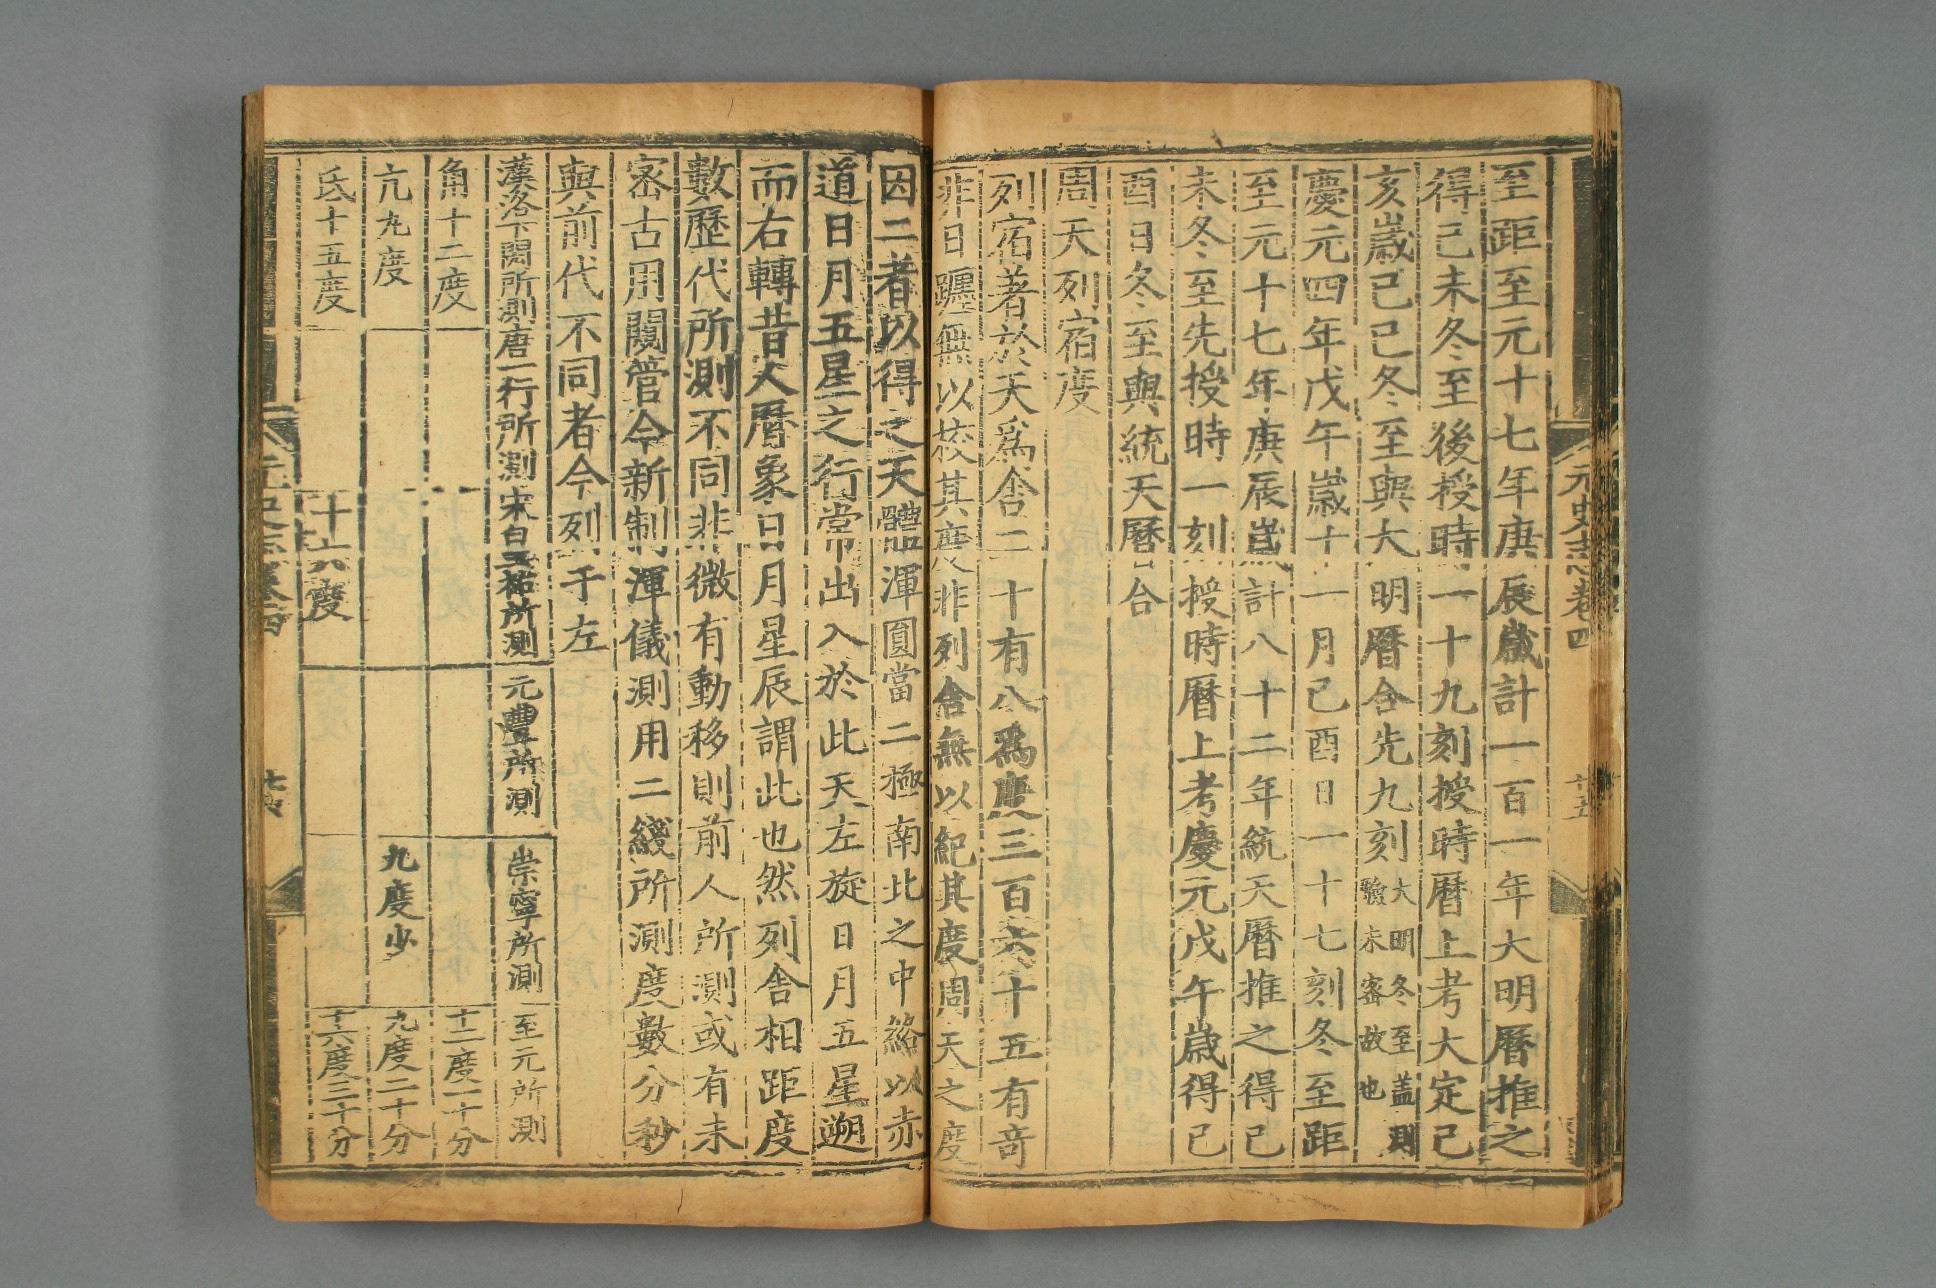 元史志卷四
十五
至距至元十七年庚辰歲計一百一年大明曆推之
得己未冬至後授時一十九刻授時曆上考大定己
亥歲己巳冬至與大明曆合先九刻大明冬至蓋測驗未密故也
慶元四年戊午歲十一月己酉日一十七刻冬至距
至元十七年庚辰歲計八十二年統天曆推之得己
未冬至先授時一刻授時曆上考慶元戊午歲得己
酉日冬至與統天曆合
周天列宿度
列宿著於天爲舍二十有八爲度三百六十五有奇
非日躔無以校其度非列舍無以紀其度周天之度
因二者以得之天體渾圓當二極南北之中絡以赤
道日月五星之行常出入於此天左旋日月五星遡
而右轉昔人曆象日月星辰謂此也然列舍相距度
數歷代所測不同非微有動移則前人所測或有未
密古用闚管今新制渾儀測用二綫所測度數分秒
與前代不同者今列于左
漢洛下閎所測 唐一行所測 宋皇祐所測 元豐所測 崇寧所測 至元所測
角十二度 十二度一十分
亢九度 九度少 九度二十分
氐十五度 十六度 十六度三十分
元史志卷四